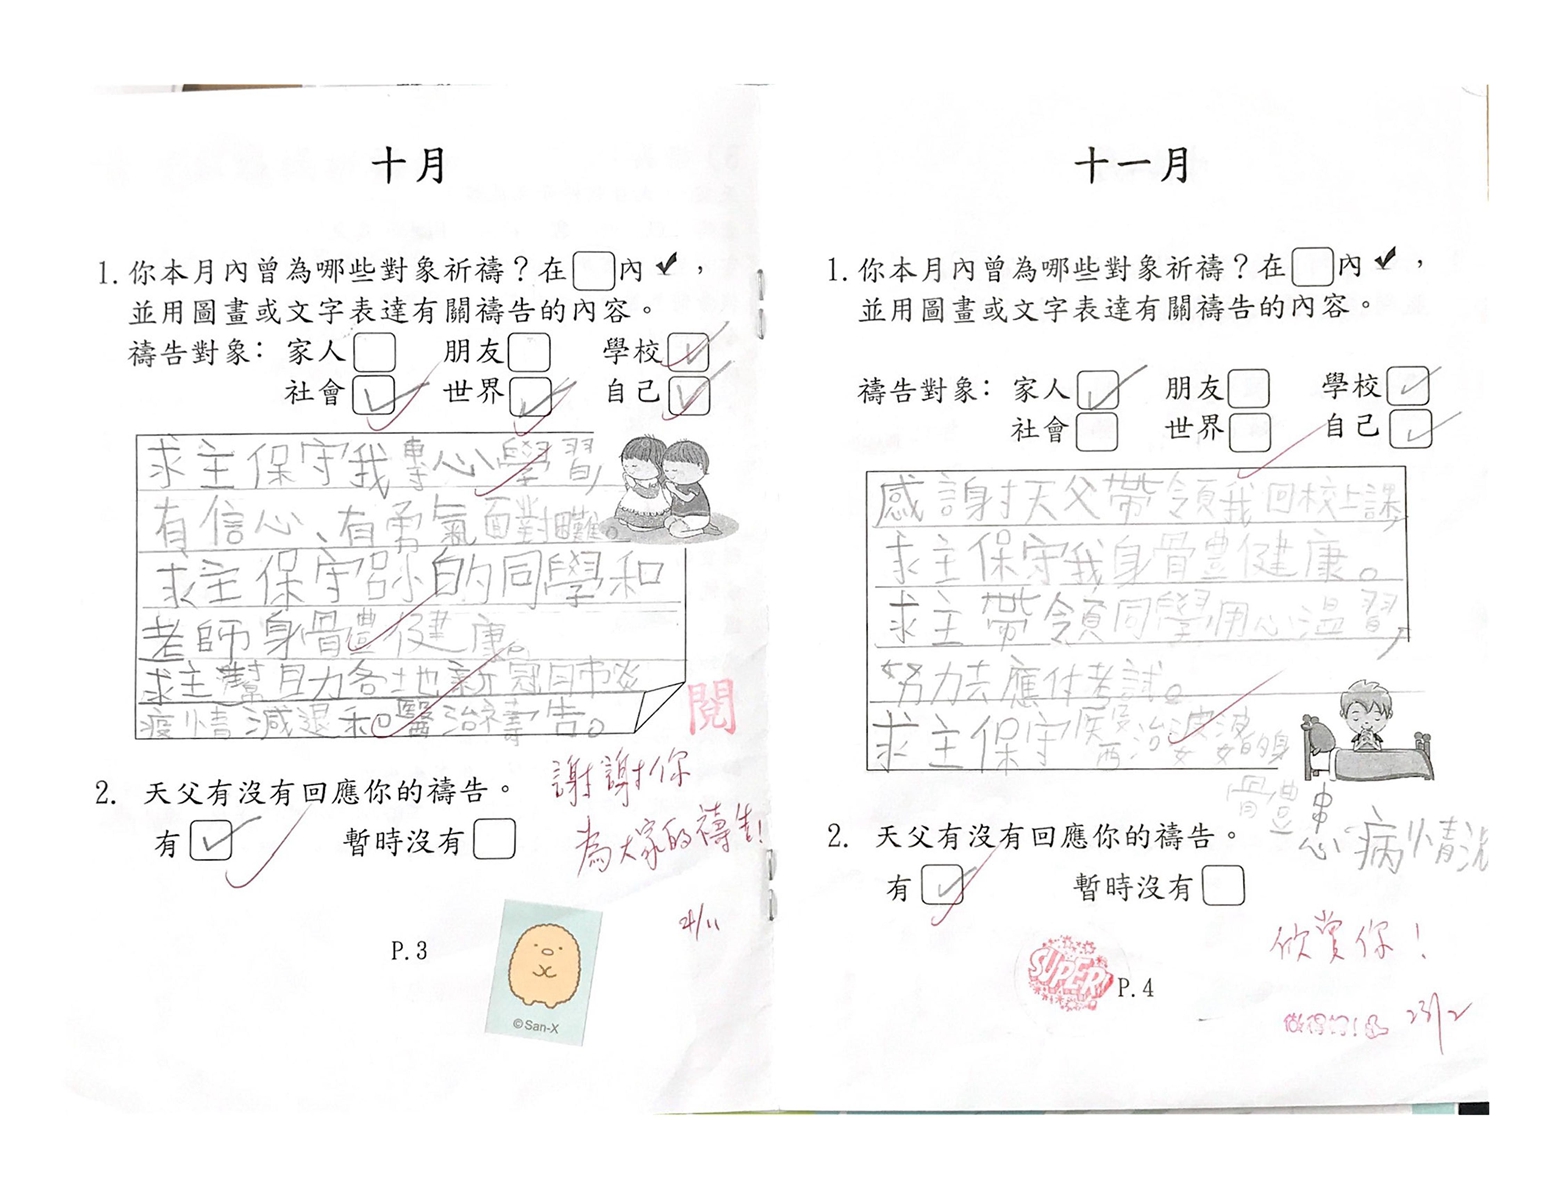 十月
1. 你本月內曾為哪些對象祈禱？在□內✔，
並用圖畫或文字表達有關禱告的內容。
禱告對象： 家人□ 朋友□ 學校☑
社會☑ 世界☑ 自己☑
求主保守我專心學習，
有信心、有勇氣面對困難。
求主保守呂小的同學和
老師身體健康。
求主幫助各地新冠肺炎
疫情減退和醫治禱告。
閱
2. 天父有沒有回應你的禱告。
有☑ 暫時沒有□
謝謝你
為大家的禱告！
24/11
P.3
©San-X
十一月
1. 你本月內曾為哪些對象祈禱？在□內✔，
並用圖畫或文字表達有關禱告的內容。
禱告對象： 家人☑ 朋友□ 學校☑
社會□ 世界□ 自己☑
感謝天父帶領我回校上課，
求主保守我身體健康。
求主帶領同學用心溫習，
努力去應付考試。
求主保守醫治婆婆的身
體患病情況
2. 天父有沒有回應你的禱告。
有☑ 暫時沒有□
欣賞你！
SUPER!
P.4
做得好！
23/2